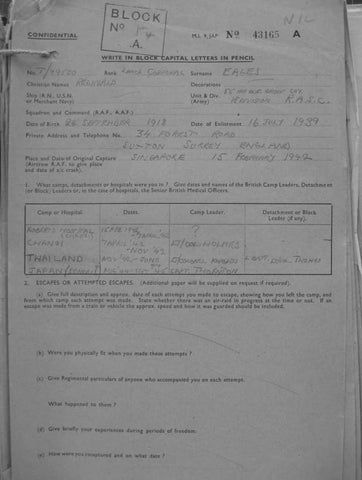 NIL
BLOCK
No
A.
CONFIDENTIAL
M.I. 9/JAP No 43165 A
WRITE IN BLOCK CAPITAL LETTERS IN PENCIL
No. T/99500 Rank LANCE CORPORAL Surname EAGLES
Christian Names REGINALD Decorations
Ship (R.N., U.S.N. or Merchant Navy) Unit & Div. (Army) DIVISION R.A.S.C.
Squadron and Command (R.A.F., A.A.F.)
Date of Birth 26 SEPTEMBER 1918 Date of Enlistment 16 JULY 1939.
Private Address and Telephone No. 34 FOREST ROAD
SUTTON SURREY ENGLAND
Place and Date of Original Capture SINGAPORE 15 FEBRUARY 1942
(Aircrew R.A.F. to give place
and date of a/c crash).
1. What camps, detachments or hospitals were you in? Give dates and names of the British Camp Leaders, Detachment
or Block Leaders or, in the case of hospitals, the Senior British Medical Officers.
Camp or Hospital Dates. Camp Leader. Detachment or Block Leader (if any).
ROBERTS HOSPITAL ?
CHANGI LT/COL HOLMES
THAILAND
JAPAN CAPT.
2. ESCAPES OR ATTEMPTED ESCAPES. (Additional paper will be supplied on request if required).
(a) Give full description and approx. date of each attempt you made to escape, showing how you left the camp, and
from which camp each attempt was made. State whether there was an air-raid in progress at the time or not. If an
escape was made from a train or vehicle the approx. speed and how it was guarded should be included.
(b) Were you physically fit when you made these attempts?
(c) Give Regimental particulars of anyone who accompanied you on each attempt.
What happened to them?
(d) Give briefly your experience during periods of freedom.
(e) How were you recaptured and on what date?